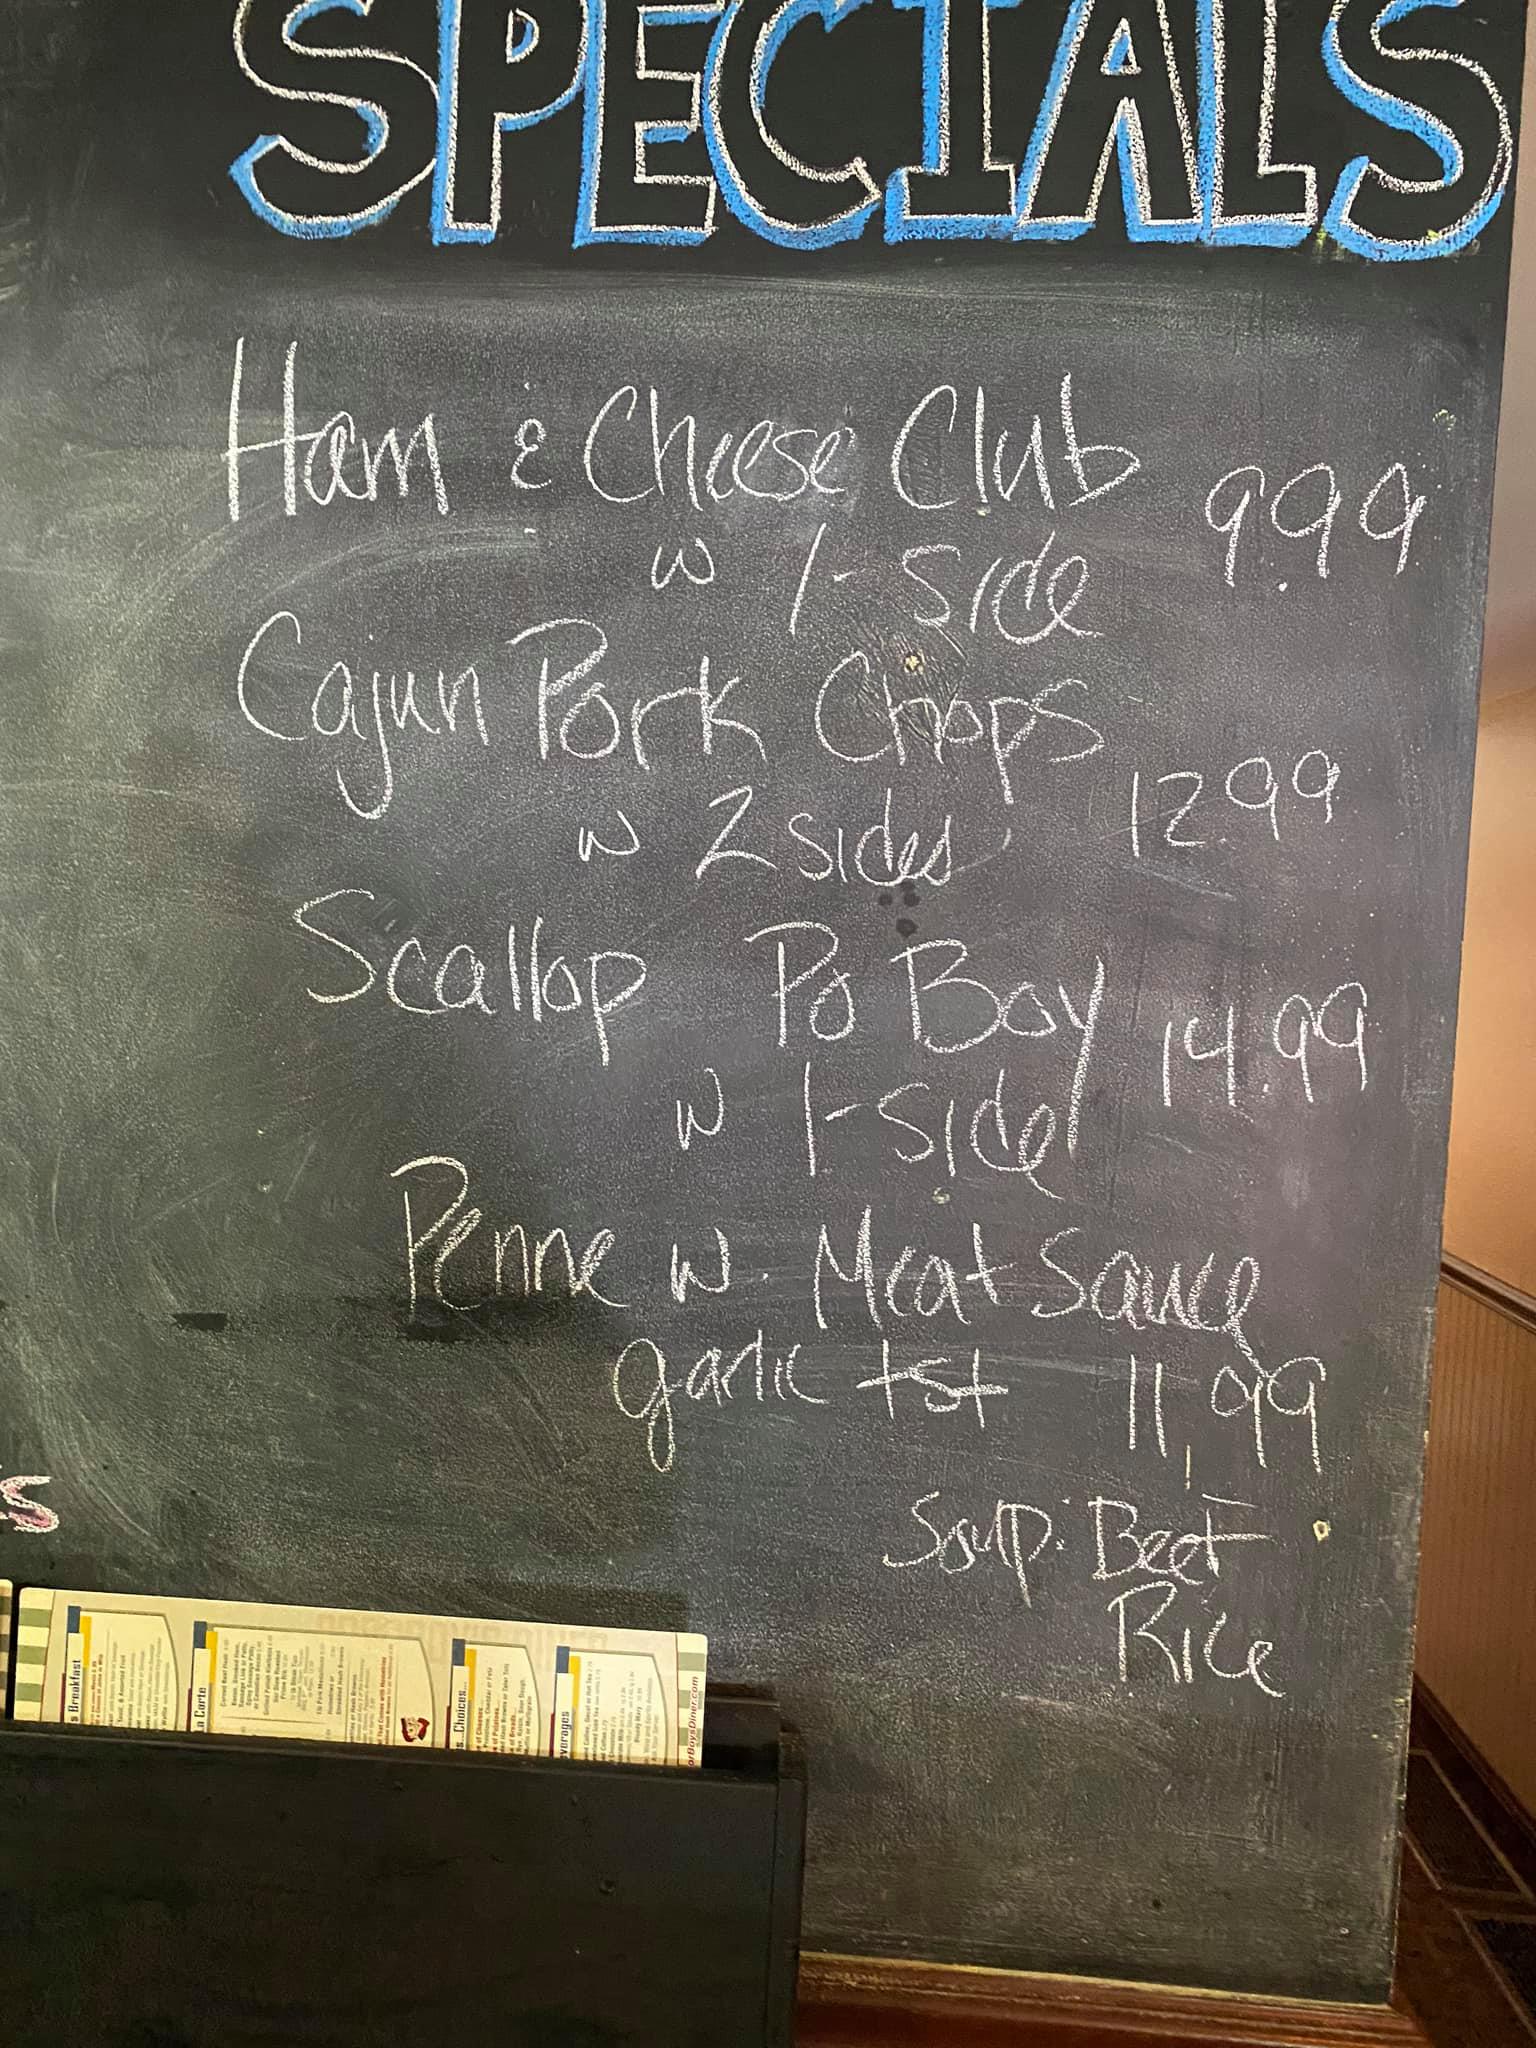 SPECIALS
Ham & Cheese Club 9.99
w 1-side
Cajun Pork Chops
w 2 sides 12.99
Scallop Po Boy 14.99
w 1-side
Penne w. Meat Sauce
garlic tst 11.99
Soup: Beef
Rice
s
Breakfast
a Carte
s...Choices...
verages
orBoysDiner.com